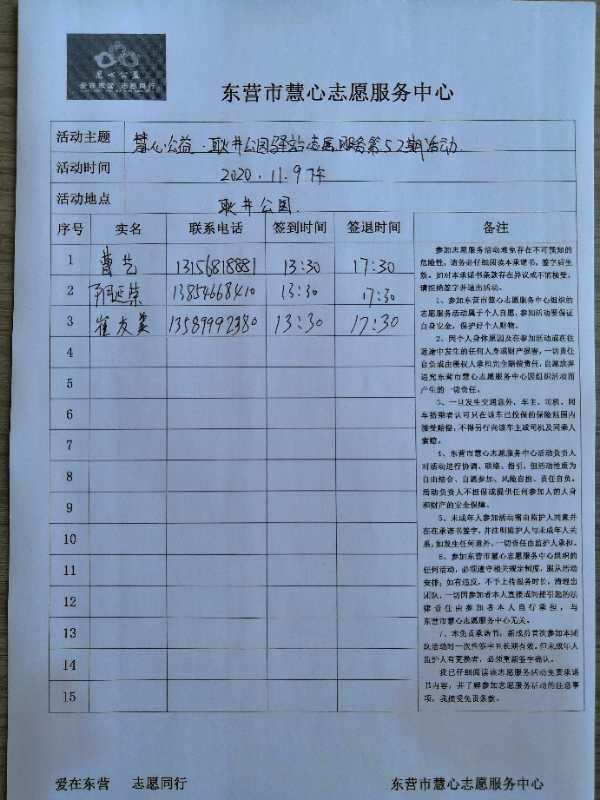 慧心公益
爱在东营 志愿同行
东营市慧心志愿服务中心
活动主题 慧心公益·耿井公园驿站志愿服务第52期活动
活动时间 2020.11.9下午
活动地点 耿井公园
序号 实名 联系电话 签到时间 签退时间 备注
1 曹艺 13156818881 13:30 17:30
2 延荣 13854668410 13:30 17:30
3 崔友美 13589992380 13:30 17:30
4
5
6
7
8
9
10
11
12
13
14
15
参加志愿服务活动难免存在不可预知的
危险性,请务必仔细阅读本承诺书,签字后生
效。如对本承诺书条款存在异议或不能接受,
请拒绝签字并退出活动。
1、参加东营市慧心志愿服务中心组织的
志愿服务活动属于个人自愿,参加活动要保证
自身安全,保护好个人财物。
2、因个人身体原因及在参加活动或在往
返途中发生的任何人身或财产损害,一切责任
自负或由侵权人承担完全赔偿责任,自愿放弃
追究东营市慧心志愿服务中心因组织活动而
产生的一切责任。
3、一旦发生交通意外,车主、司机、同
车搭乘者认可只在该车已投保的保险范围内
接受赔偿,不得另行向该车主或司机及同乘人
索赔。
4、东营市慧心志愿服务中心活动负责人
对活动进行协调、联络、指引,但活动性质为
自由结合、自愿参加、风险自担、责任自负。
活动负责人不担保或提供任何参加人的人身
和财产的安全保障。
5、未成年人参加活动需由监护人同意并
在在承诺书签字,并注明监护人与未成年人关
系,如发生任何意外,一切责任由监护人承担。
6、参加东营市慧心志愿服务中心组织的
任何活动,必须遵守相关规定制度,服从活动
安排;如有违反,不予上传服务时长,清理出
团队,一切因参加者本人直接或间接引起的法
律责任由参加者本人自行承担,与
东营市慧心志愿服务中心无关。
7、本免责承诺书,新成员首次参加本团
队活动时一次性签字且长期有效。但未成年人
监护人有更换者,必须重新签字确认。
我已仔细阅读该志愿服务活动免责承诺
书内容,并了解参加志愿服务活动的注意事
项,我接受免责条款。
爱在东营 志愿同行 东营市慧心志愿服务中心